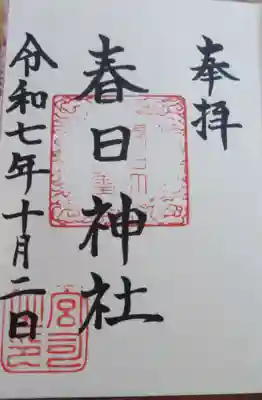 奉拝
春日神社
令和七年十月二日